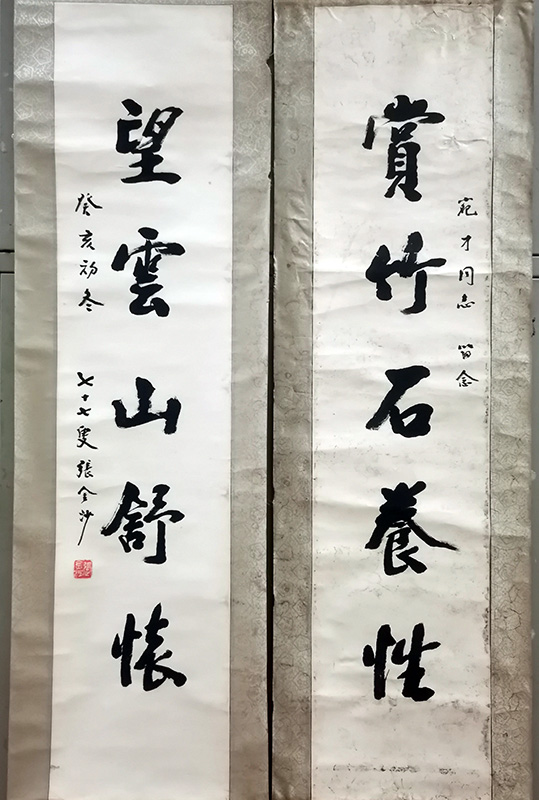 賞竹石養性
範才同志 留念
望雲山舒懷
癸亥初冬 七十七叟張金沙